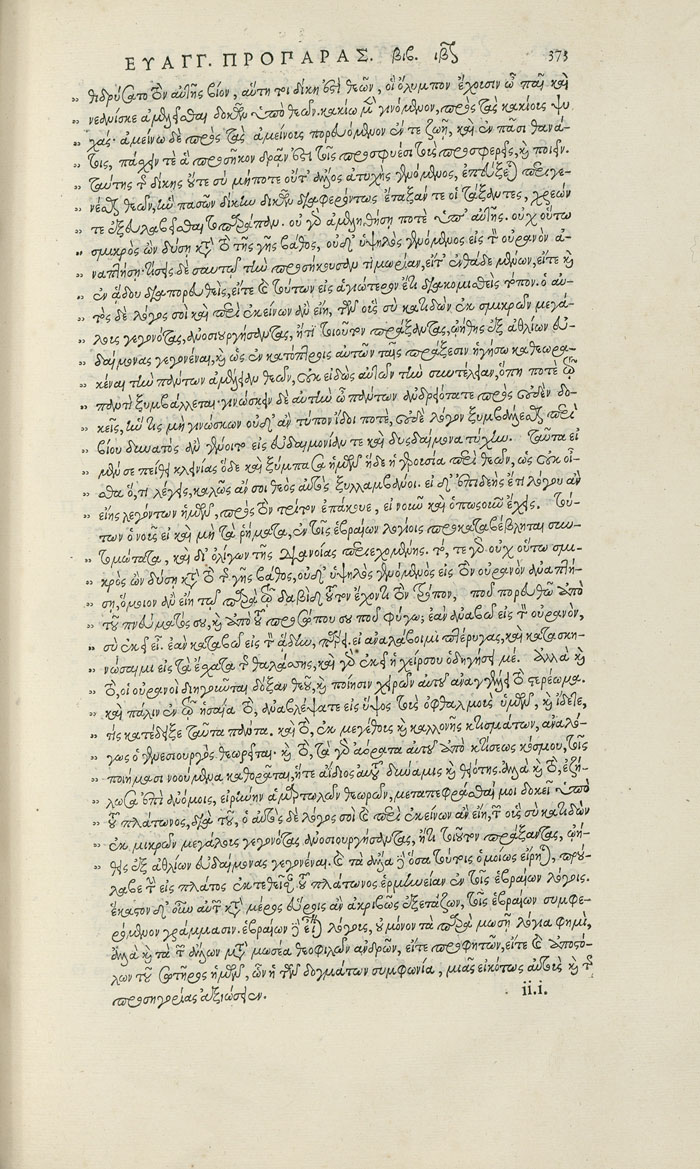 ΕΥΑΓΓ. ΠΡΟΠΑΡΑΣ. βιβ. ιβ 373
θιδρύσατο τὸν αὐτῆς βίον, αὕτη τοι δίκη ἐστὶ θεῶν, οἳ ὄλυμπον ἔχουσιν ὦ παῖ καὶ
νεανίσκε ἀμελεῖσθαι δοκῶν ὑπὸ θεῶν. κακίω μὲν γινόμενον, πρὸς τὰς κακίους ψυ
χάς· ἀμείνω δὲ πρὸς τὰς ἀμείνους πορευόμενον ἔν τε ζωῇ, καὶ ἐν πᾶσι θανά-
τοις, πάσχειν τε ἃ προσῆκον δρᾶν ἐστὶ τοῖς προσφυέσι τοὺς προσφερεῖς, καὶ ποιεῖν.
ταύτης τῆς δίκης οὔτε σὺ μήποτε οὔτ' ἄλλος ἀτυχὴς γενόμενος, ἐπεύξεται περιγε-
νέσθαι θεῶν, ἣν πασῶν δικῶν διαφερόντως ἔταξάν τε οἱ τάξαντες, χρεών
τε ἐξευλαβεῖσθαι τοπαράπαν. οὐ γὰρ ἀμεληθήσῃ ποτὲ ὑπ' αὐτῆς. οὐχ οὕτω
σμικρὸς ὢν δύσῃ κατὰ τὸ τῆς γῆς βάθος, οὐδ' ὑψηλὸς γενόμενος εἰς τὸν οὐρανὸν ἀ-
ναπτήσῃ· τίσεις δὲ σαυτῷ τὴν προσήκουσαν τιμωρίαν, εἴτ' ἐνθάδε μένων, εἴτε καὶ
ἐν ᾅδου διαπορευθεὶς, εἴτε καὶ τούτων εἰς ἀγιώτερον ἔτι διακομισθεὶς τόπον. ὁ αὐ-
τὸς δὲ λόγος σοι καὶ περὶ ἐκείνων ἂν εἴη, τῶν οὓς σὺ κατιδὼν ἐκ σμικρῶν μεγά-
λους γεγονότας, ἀνοσιουργήσαντας, ἤ τι τοιοῦτον πράξαντας, ᾠήθης ἐξ ἀθλίων εὐ-
δαίμονας γεγονέναι, καὶ ὡς ἐν κατόπτροις αὐτῶν ταῖς πράξεσιν ἡγήσω καθεωρα-
κέναι τὴν πάντων ἀμέλειαν θεῶν, οὐκ εἰδὼς αὐτῶν τὴν συντέλειαν, ὅπη ποτὲ τῷ
παντὶ ξυμβάλλεται· γινώσκειν δὲ αὐτὴν ὦ πάντων ἀνδρειότατε πρὸς οὐδὲν δο-
κεῖς, ἥν τις μὴ γινώσκων οὐδ' ἂν τύπον ἴδοι ποτὲ, οὐδὲ λόγον ξυμβάλλεσθαι περὶ
βίου δυνατὸς ἂν γένοιτο εἰς εὐδαιμονίαν τε καὶ δυσδαίμονα τύχην. ταῦτα εἰ
μέν σε πείθει κλεινίας ὅδε καὶ ξύμπασα ἡμῶν ἥδε ἡ γερουσία περὶ θεῶν, ὡς οὐκ οἶ-
σθα ὅ,τι λέγεις, καλῶς ἄν σοι θεὸς αὐτὸς ξυλλαμβάνοι. εἰ δ' ἐπιδεὴς ἔτι λόγου ἂν
εἴης λεγόντων ἡμῶν, πρὸς τὸν τρίτον ἐπάκουε, εἰ νοῦν καὶ ὁπωσοῦν ἔχεις. τού-
των ὁ νοῦς εἰ καὶ μὴ τὰ ῥήματα, ἐν τοῖς ἑβραίων λογίοις προκαταβέβληται συν-
τομώτατα, καὶ δι' ὀλίγων τῆς διανοίας περιεχομένης. τό, τε γὰρ οὐχ οὕτω σμι-
κρὸς ὢν δύσῃ κατὰ τὸ τῆς γῆς βάθος, οὐδ' ὑψηλὸς γενόμενος εἰς τὸν οὐρανὸν ἀναπτή-
σῃ, ὅμοιον ἂν εἴη τῷ παρὰ τῷ δαβὶδ τοῦτον ἔχοντι τὸν τρόπον, ποῦ πορευθῶ ἀπὸ
τοῦ πνεύματός σου, καὶ ἀπὸ τοῦ προσώπου σου ποῦ φύγω; ἐὰν ἀναβῶ εἰς τὸν οὐρανὸν,
σὺ ἐκεῖ εἶ. ἐὰν καταβῶ εἰς τὸν ᾅδην, πάρει. εἰ ἀναλάβοιμι πτέρυγας, καὶ κατασκη-
νώσαιμι εἰς τὰ ἔσχατα τῆς θαλάσσης, καὶ γὰρ ἐκεῖ ἡ χείρ σου ὁδηγήσει μέ. ἀλλὰ καὶ
τὸ, οἱ οὐρανοὶ διηγοῦνται δόξαν θεοῦ, καὶ ποίησιν χειρῶν αὐτοῦ ἀναγγέλλει τὸ στερέωμα.
καὶ πάλιν ἐν τῷ ἡσαΐᾳ τὸ, ἀναβλέψατε εἰς ὕψος τοὺς ὀφθαλμοὺς ὑμῶν, καὶ ἴδετε,
τίς κατέδειξε ταῦτα πάντα. καὶ τὸ, ἐκ μεγέθους καὶ καλλονῆς κτισμάτων, ἀναλό-
γως ὁ γενεσιουργὸς θεωρεῖται· καὶ τὸ, τὰ γὰρ ἀόρατα αὐτοῦ ἀπὸ κτίσεως κόσμου, τοῖς
ποιήμασι νοούμενα καθορᾶται, ἥτε ἀΐδιος αὐτοῦ δύναμις καὶ θεότης. ἀλλὰ καὶ τὸ, ἐζή-
λωσα ἐπὶ ἀνόμοις, εἰρήνην ἁμαρτωλῶν θεωρῶν, μεταπεφράσθαι μοι δοκεῖ ὑπὸ
τοῦ πλάτωνος, διὰ τοῦ, ὁ αὐτὸς δὲ λόγος σοι καὶ περὶ ἐκείνων ἂν εἴη, τῶν οὓς σὺ κατιδὼν
ἐκ μικρῶν μεγάλους γεγονότας ἀνοσιουργήσαντας, ἤ τι τοιοῦτον πράξαντας, ᾠή-
θης ἐξ ἀθλίων εὐδαίμονας γεγονέναι. καὶ τὰ ἄλλα δὲ ὅσα τούτοις ὁμοίως εἴρηται, προὔ-
λαβε τὴν εἰς πλάτος ἐκτεθεῖσαν τοῦ πλάτωνος ἑρμηνείαν ἐν τοῖς ἑβραίων λόγοις.
ἕκαστον δ' οὖν αὐτῶν κατὰ μέρος εὕροις ἂν ἀκριβῶς ἐξετάζων, τοῖς ἑβραίων συμφε-
ρόμενον γράμμασιν. ἑβραίων δὲ ἐπὶ λόγοις, οὐ μόνον τὰ παρὰ μωσῆ λόγιά φημι,
ἀλλὰ καὶ τὰ τῶν ἄλλων μετὰ μωσέα θεοφιλῶν ἀνδρῶν, εἴτε προφητῶν, εἴτε καὶ ἀποστό-
λων τοῦ σωτῆρος ἡμῶν, ὧν ἡ τῶν δογμάτων συμφωνία, μιᾶς εἰκότως αὐτοὺς καὶ τῆς
προσηγορίας ἀξιώσειεν.
ii.i.